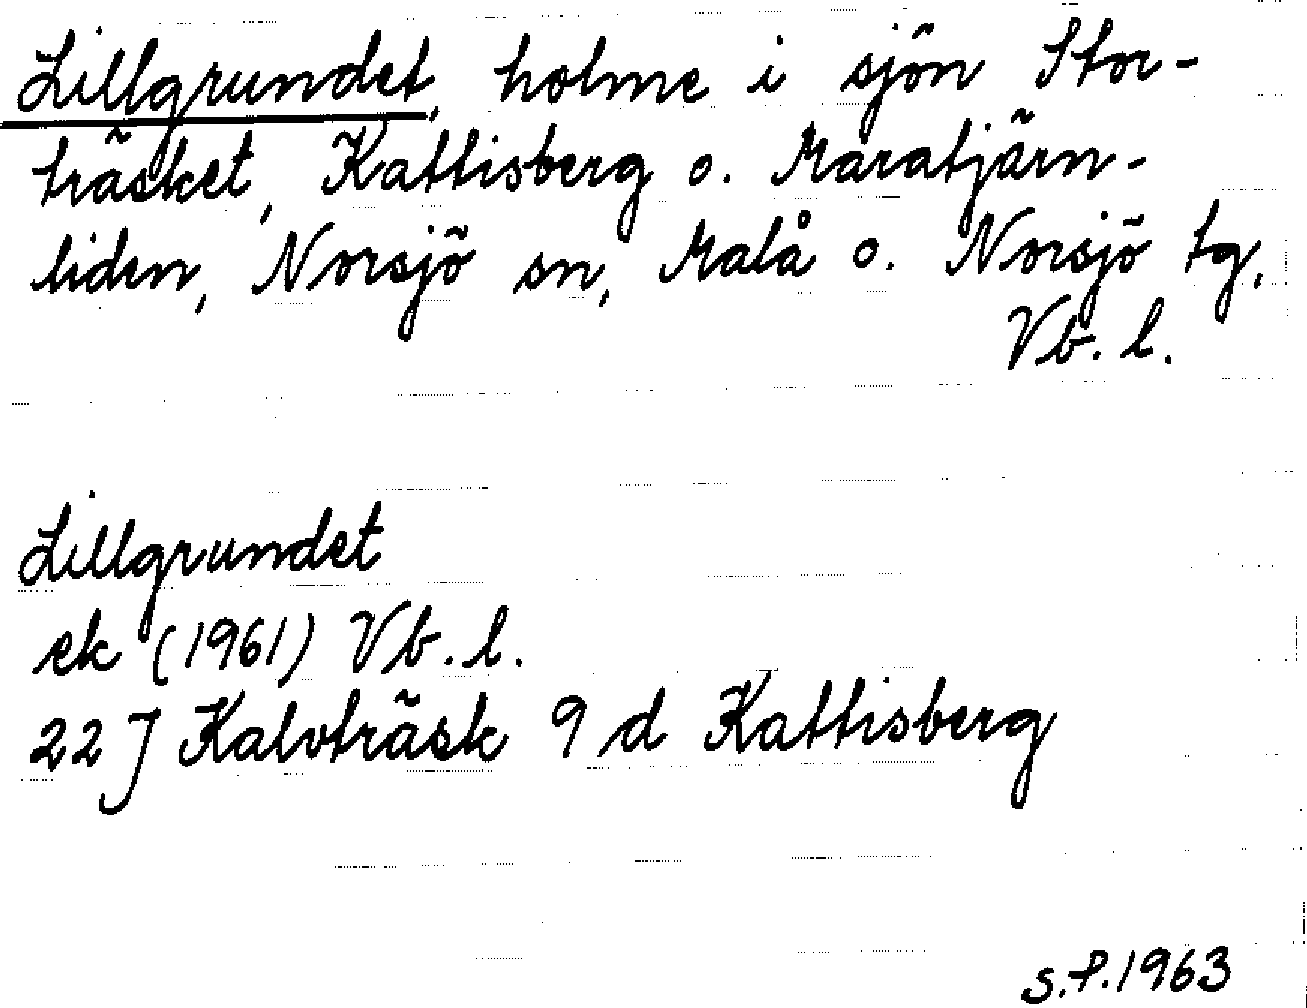 Lillgrundet, holme i sjön Stor-
träsket, Kattisberg o. Maratjärn-
liden, Norsjö sn, Malå o. Norsjö tg,
Vb. l.
Lillgrundet
ek (1961) Vb. l.
22 J Kalvträsk 9 d Kattisberg
S.P. 1963